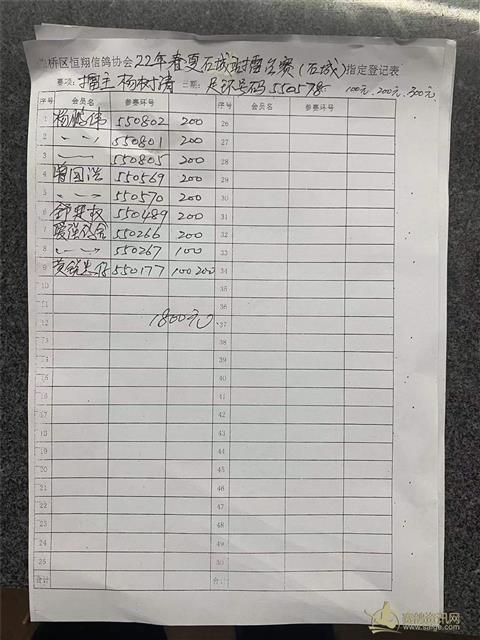 桥区恒翔信鸽协会22年春夏石城站擂台赛(石城)指定登记表
赛项: 擂主 杨树清 日期: 足环号码 550578 100元、200元、300元
序号 会员名 参赛环号 序号 会员名 参赛环号
1 杨鹏伟 550802 200 26
2 〃 〃 550801 200 27
3 550805 200 28
4 曾国浩 550569 200 29
5 〃 〃 550570 200 30
6 550489 200 31
7 550266 200 32
8 〃 〃 550267 100 33
9 550177 100 200 34
10 35
11 36
12 1800元 37
13 38
14 39
15 40
16 41
17 42
18 43
19 44
20 45
21 46
22 47
23 48
24 49
25 50
合计 合计
赛鸽资讯网
www.saige.com